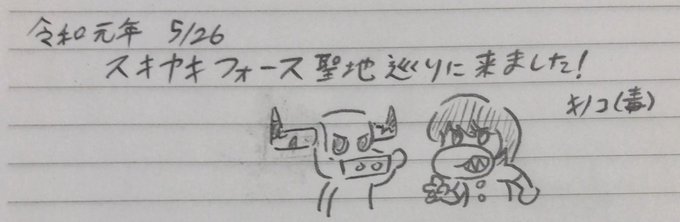 令和元年 5/26
スキヤキフォース聖地巡りに来ました!
キノコ(毒)